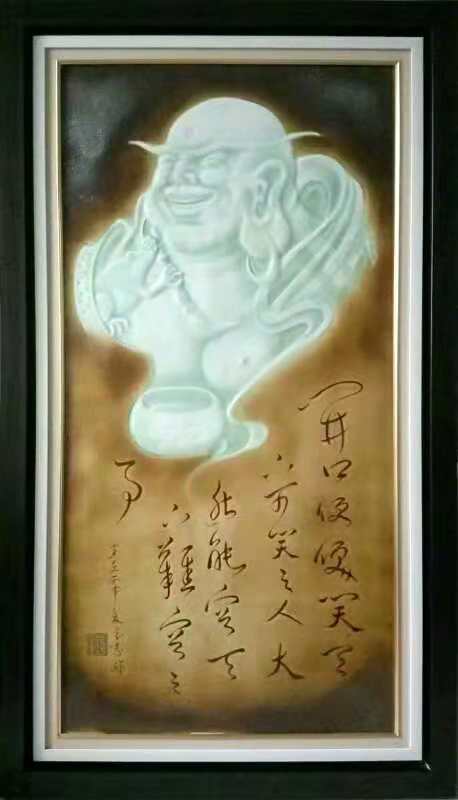 開口便笑笑天
下可笑之人大
肚能容天
下難容之
事